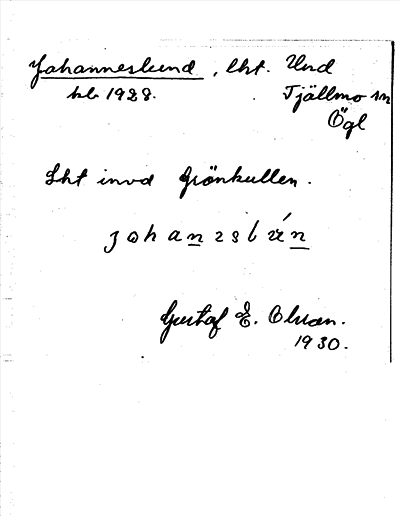 Johanneslund, lht. Und
kb 1928. Tjällmo sn
Ögl
Lht invd Grönkullen.
Gustaf E. Olson.
1930.